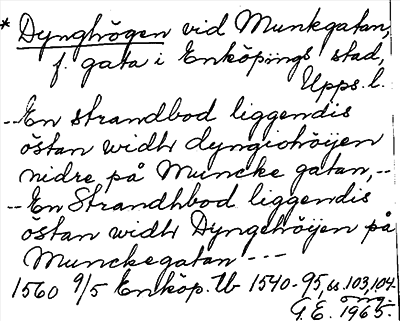 * Dynghögen vid Munkgatan,
f. gata i Enköpings stad,
Upps. l.
-- En strandbod liggendis
östan widhr dyngiohöijen
nidre på Muncke gatan, --
-- En Strandhbod liggendis
östan widhr Dyngehöijen på
Munckegatan ---
1560 9/5 Enköp. tb 1540-95, ss. 103, 104
G.E. 1965.